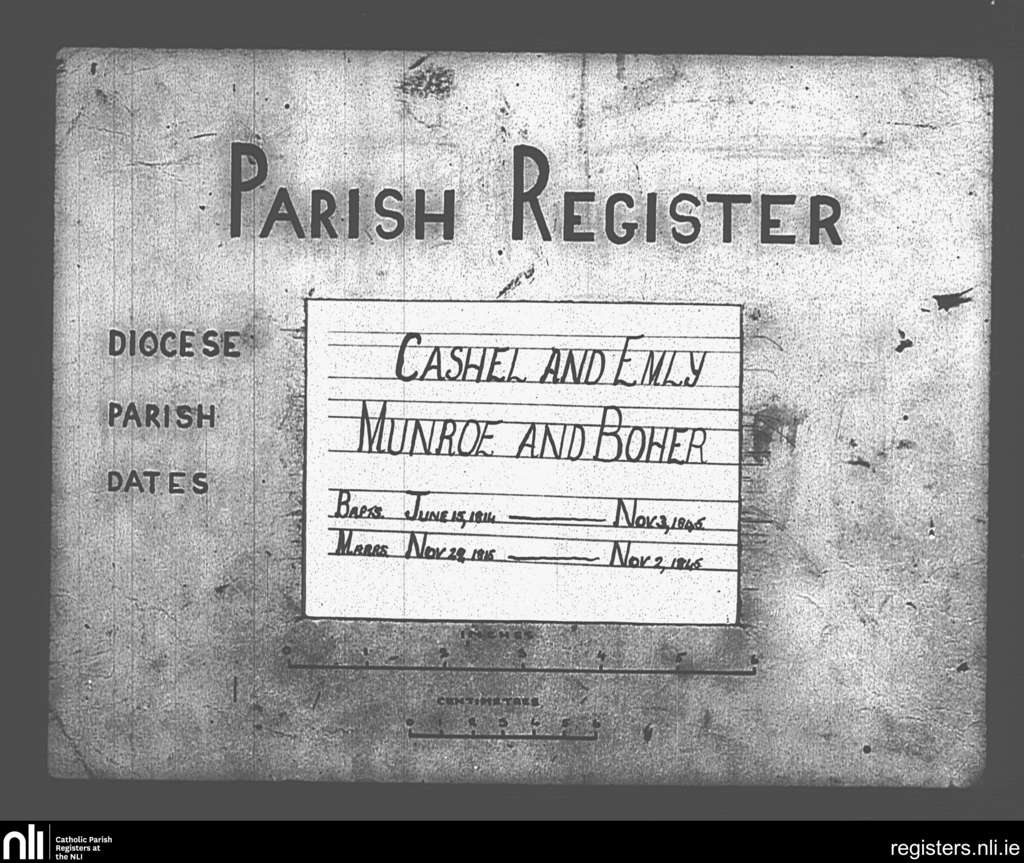 PARISH REGISTER
DIOCESE CASHEL AND EMLY
PARISH MUNROE AND BOHER
DATES BAPTS. JUNE 15, 1814 — NOV. 3, 1845
MARRS NOV 28, 1815 — NOV 2, 1845
INCHES
0 1 2 3 4 5 6
CENTIMETRES
0 1 2 3 4 5 6
nli Catholic Parish
Registers at
the NLI
registers.nli.ie